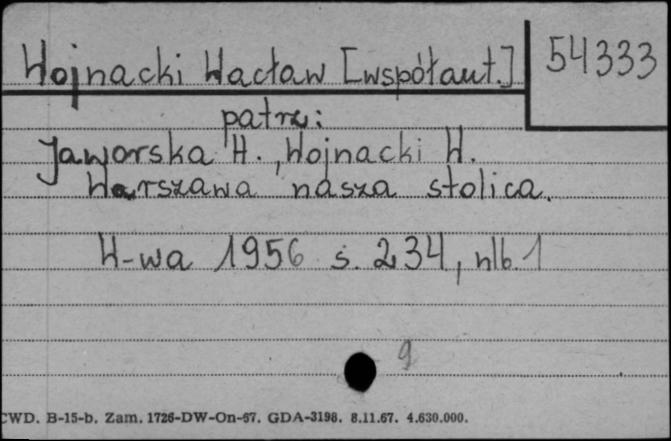 Wojnacki Wacław [współaut.]
54333
patrz:
Jaworska H., Wojnacki W.
Warszawa nasza stolica.
W-wa 1956 s. 234, nlb. 1
9
CWD. B-15-b. Zam. 1726-DW-On-67. GDA-3198. 8.11.67. 4.630.000.